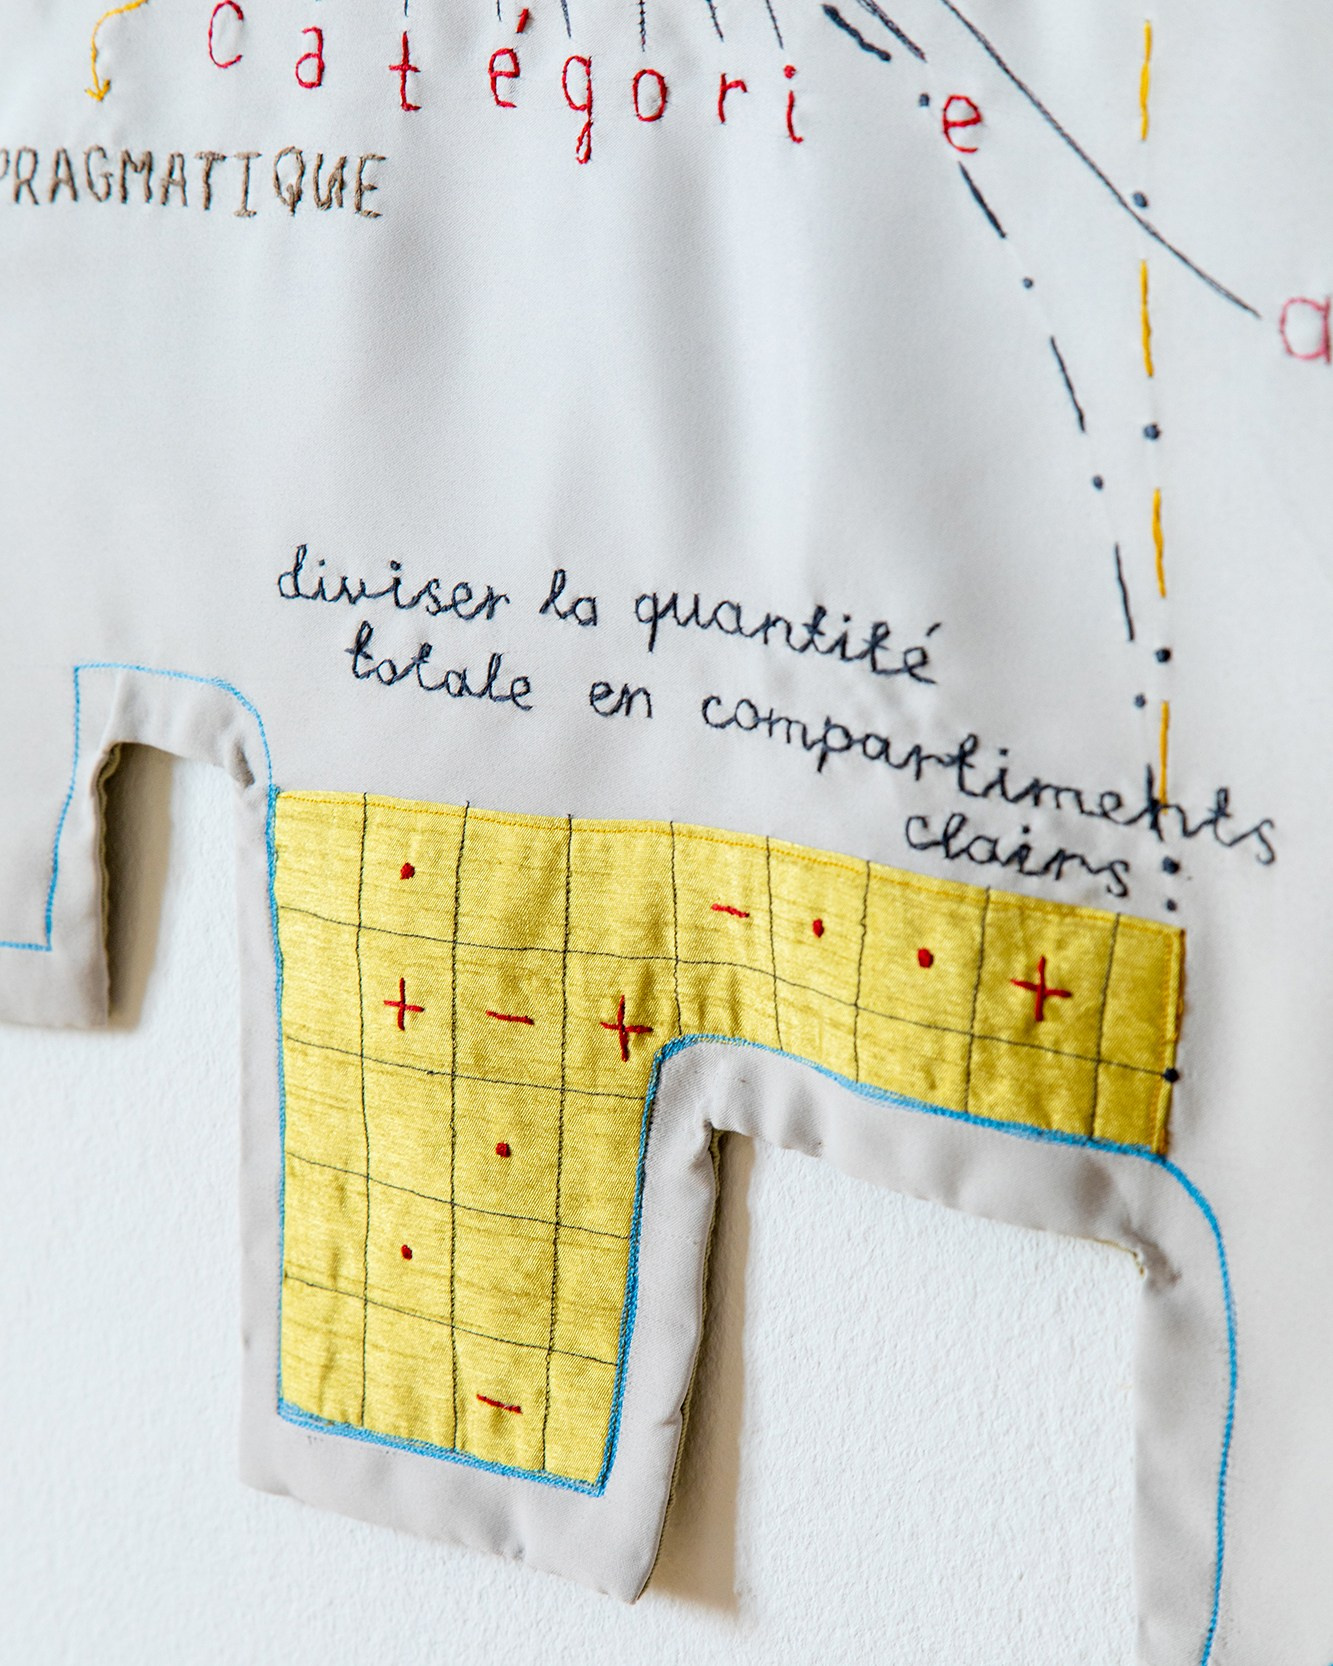 catégorie
PRAGMATIQUE
a
diviser la quantité
totale en compartiments
clairs